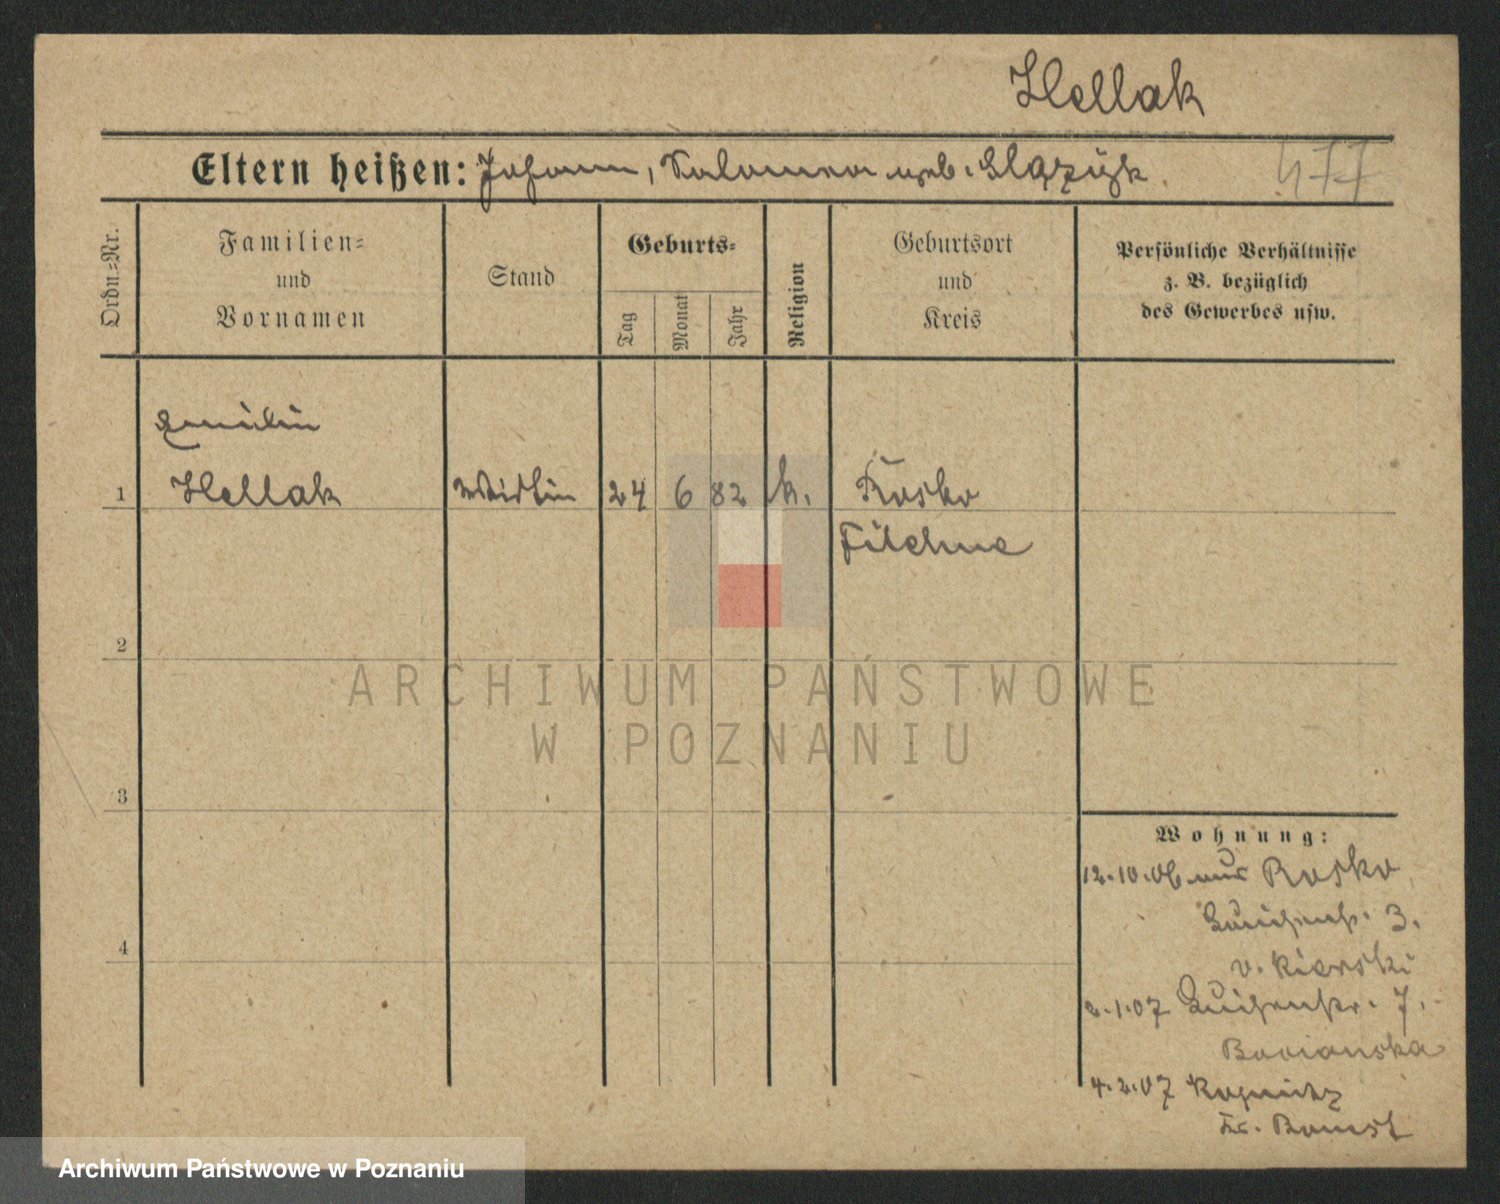 Hellak
Eltern heißen: Johann, Salomea geb. Slązyk. 477
Ordn.=Nr.
Familien=
und
Vornamen
Stand
Geburts=
Tag
Monat
Jahr
Religion
Geburtsort
und
Kreis
Persönliche Verhältnisse
z. B. bezüglich
des Gewerbes usw.
Emilie
1 Hellak 24 6 82 k. Rosko
Filehne
2
3
4
ARCHIWUM PAŃSTWOWE
W POZNANIU
Wohnung:
12.10.06 aus Rosko
Luisenstr. 3.
v. Kierski
2.1.07 Luisenstr. 7.
4.2.07 Kopnitz
Kr. Bomst
Archiwum Państwowe w Poznaniu